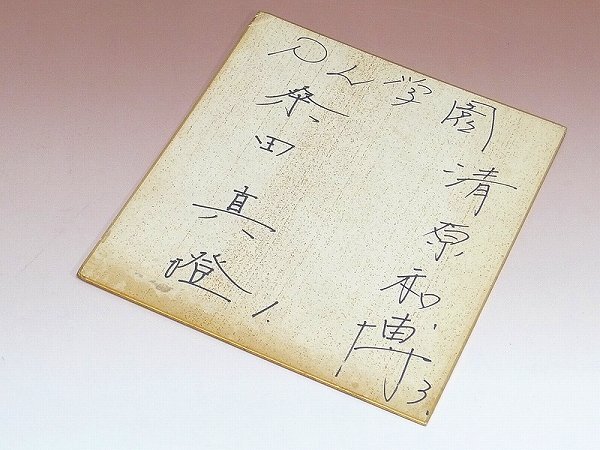 PL学園
清原和博 3.
桑田真澄 1.